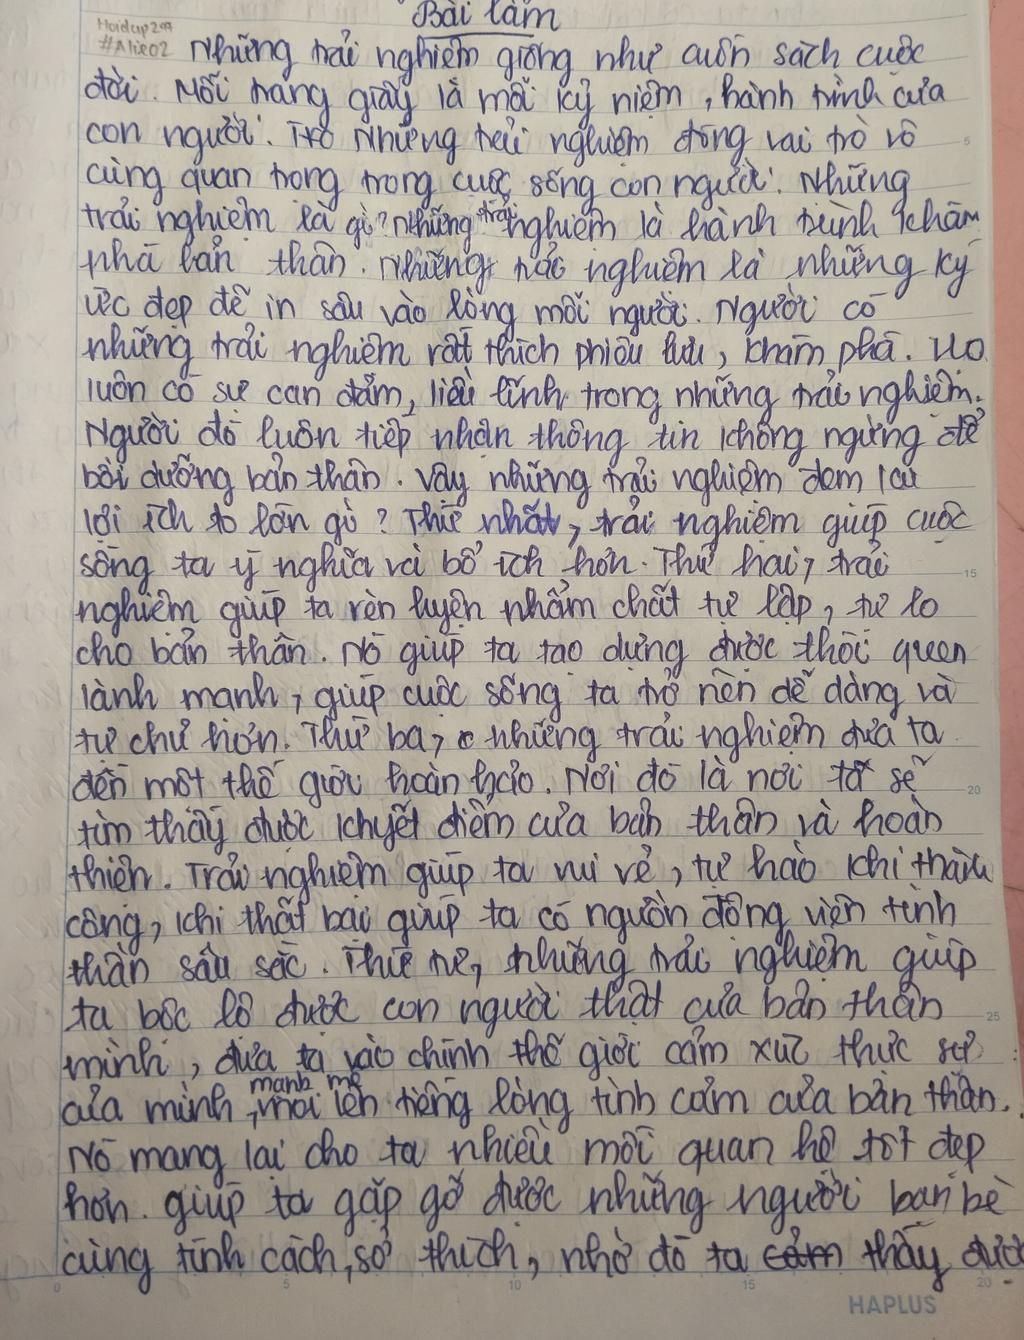 Bài làm
Hoidap247
#Alie02
Những trải nghiệm giống như cuốn sách cuộc
đời. Mỗi trang giấy là mỗi kỷ niệm, hành trình của
con người. Những trải nghiệm đóng vai trò vô
cùng quan trọng trong cuộc sống con người. Những
trải nghiệm là gì? Những trải nghiệm là hành trình khám
phá bản thân. Những trải nghiệm là những ký
ức đẹp để in sâu vào lòng mỗi người. Người có
những trải nghiệm rất thích phiêu lưu, khám phá. Họ
luôn có sự can đảm, liều lĩnh trong những trải nghiệm.
Người đó luôn tiếp nhận thông tin không ngừng để
bồi dưỡng bản thân. Vậy những trải nghiệm đem lại
lợi ích to lớn gì? Thứ nhất, trải nghiệm giúp cuộc
sống ta ý nghĩa và bổ ích hơn. Thứ hai, trải
nghiệm giúp ta rèn luyện phẩm chất tự lập, tự lo
cho bản thân. Nó giúp ta tạo dựng được thói quen
lành mạnh, giúp cuộc sống ta trở nên dễ dàng và
tự chủ hơn. Thứ ba, những trải nghiệm đưa ta
đến một thế giới hoàn hảo. Nơi đó là nơi ta sẽ
tìm thấy được khuyết điểm của bản thân và hoàn
thiện. Trải nghiệm giúp ta vui vẻ, tự hào khi thành
công, khi thất bại giúp ta có nguồn động viên tinh
thần sâu sắc. Thứ tư, những trải nghiệm giúp
ta bộc lộ được con người thật của bản thân
mình, đưa ta vào chính thế giới cảm xúc thực sự
của mình, mạnh mẽ nói lên tiếng lòng tình cảm của bản thân.
Nó mang lại cho ta nhiều mối quan hệ tốt đẹp
hơn. giúp ta gặp gỡ được những người bạn bè
cùng tính cách, sở thích, nhờ đó ta thấy được
HAPLUS